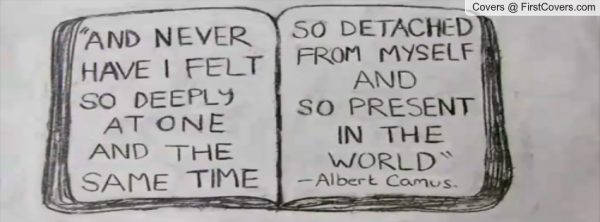 Covers @ FirstCovers.com
"AND NEVER
HAVE I FELT
SO DEEPLY
AT ONE
AND THE
SAME TIME
SO DETACHED
FROM MYSELF
AND
SO PRESENT
IN THE
WORLD"
-Albert Camus.